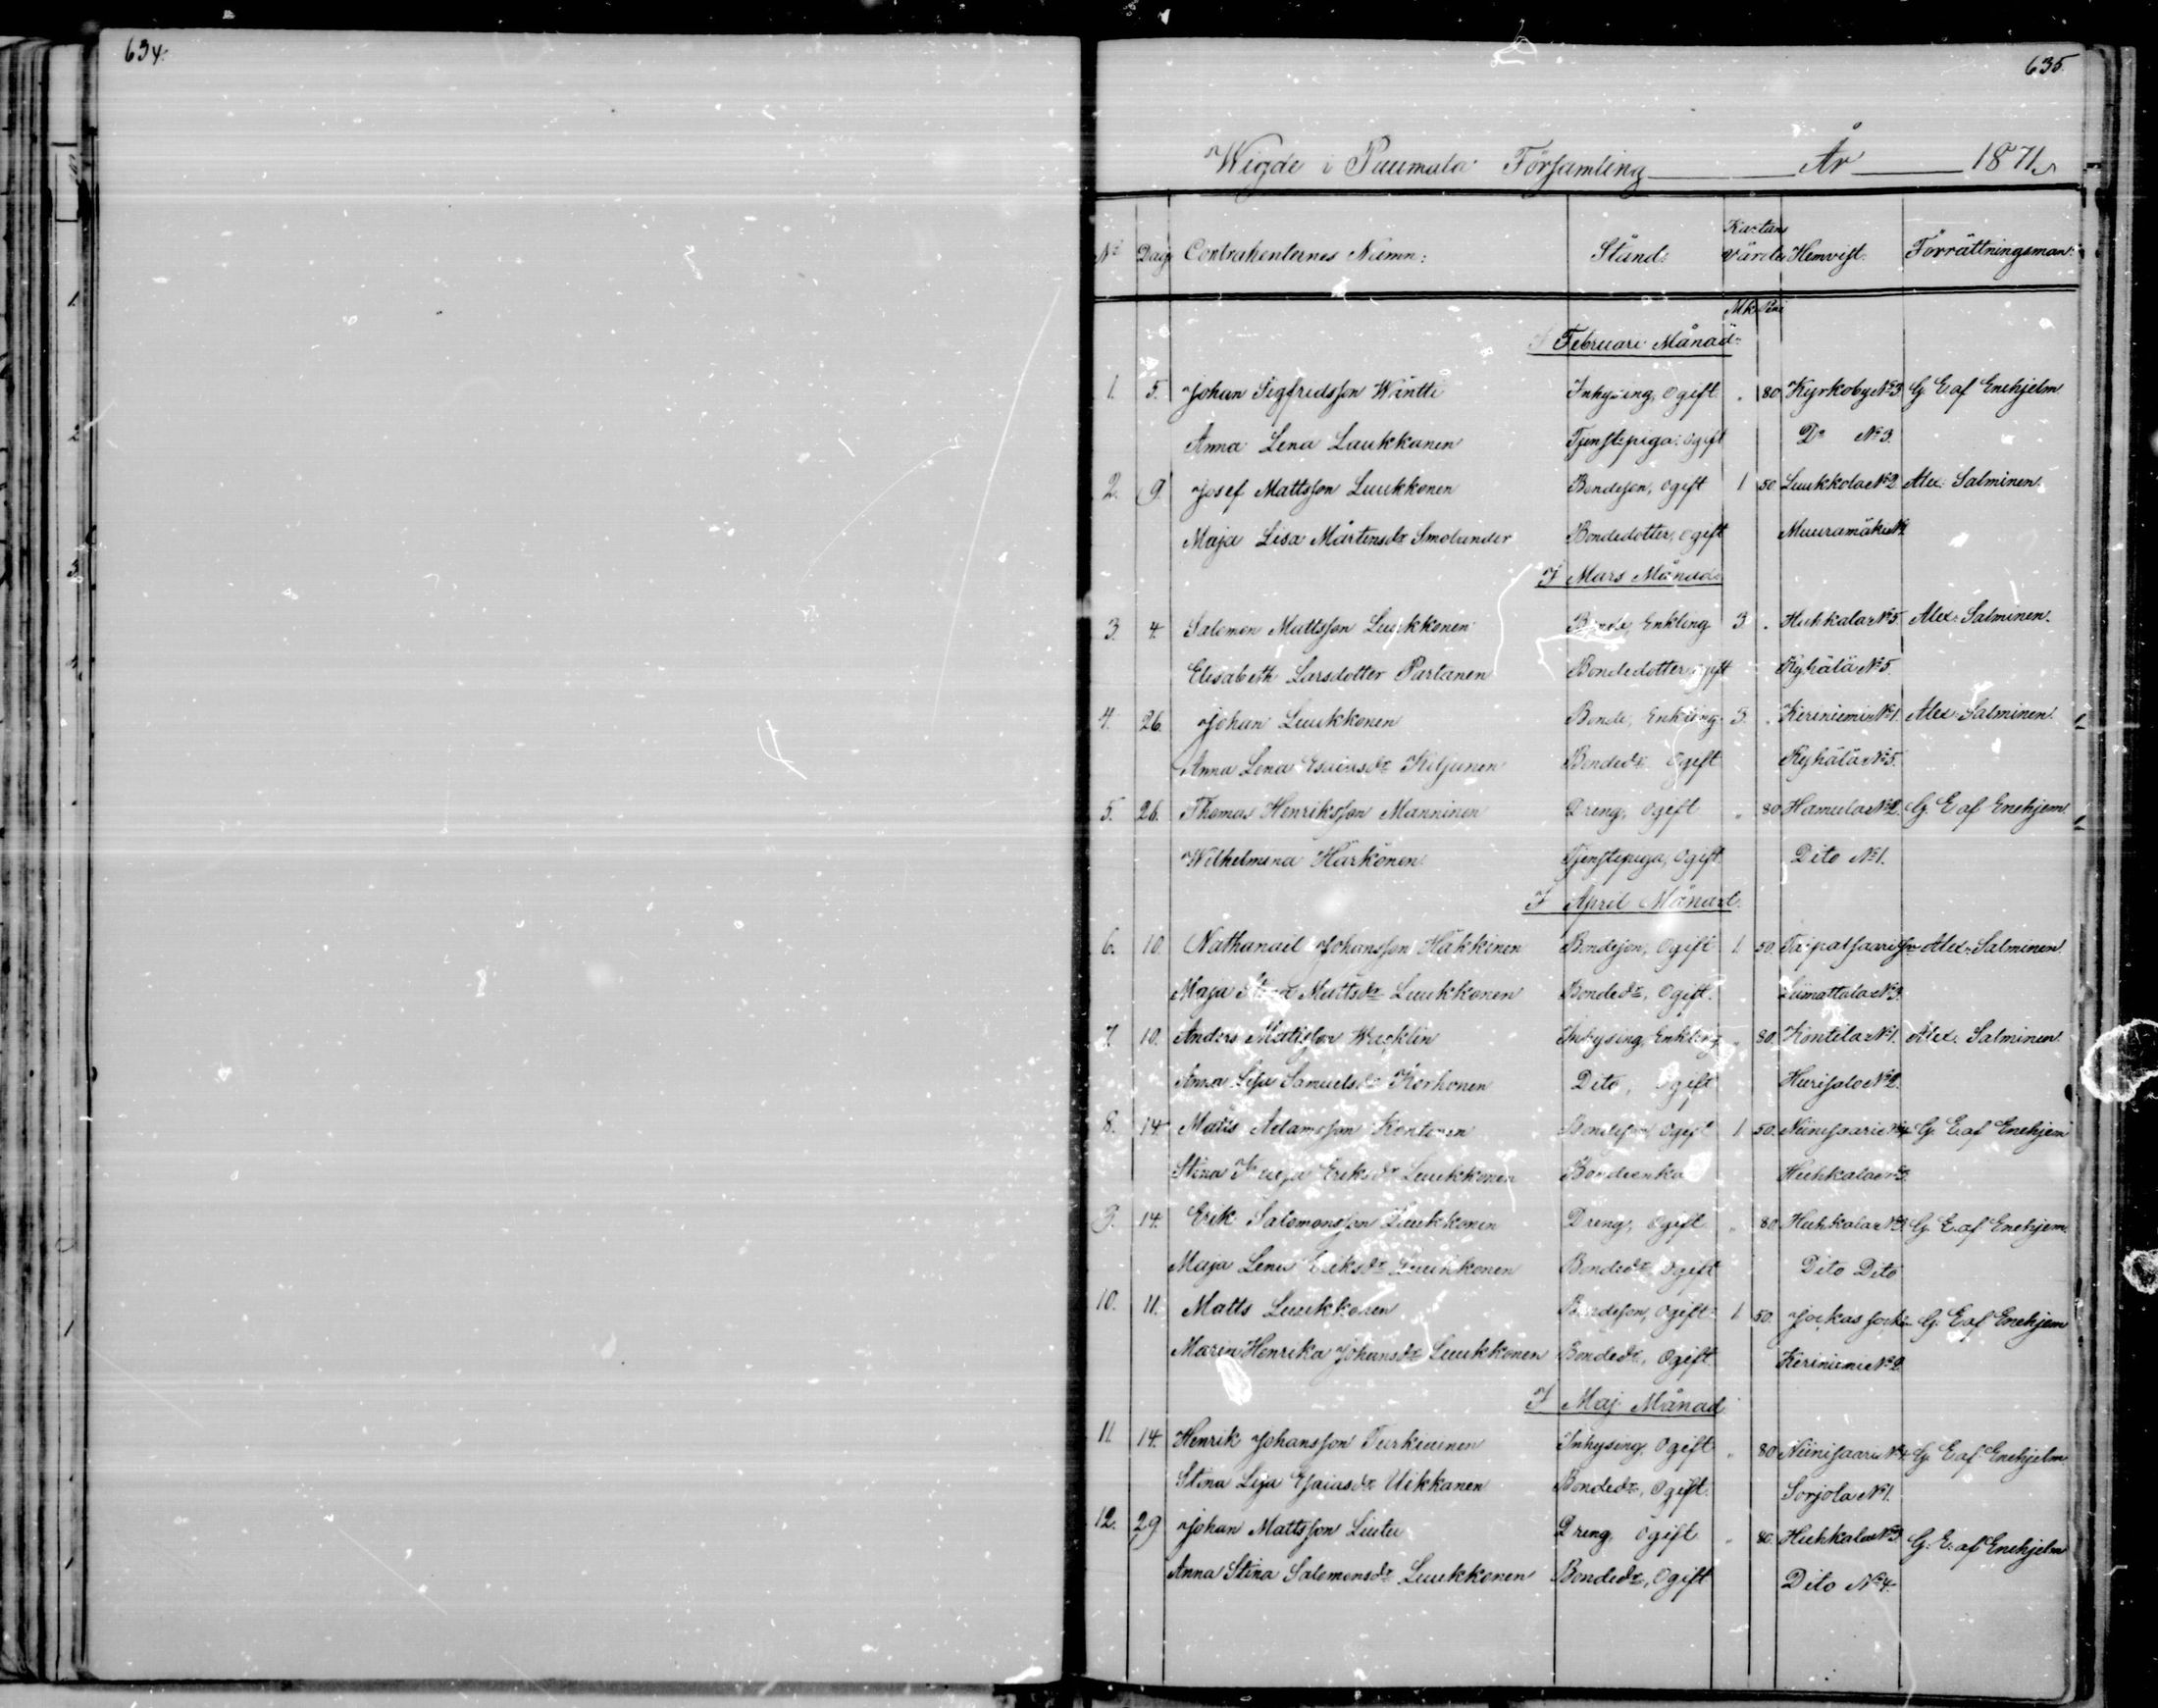 634.
635.
Wigde i Puumala Församling År 1871.
No Dag Contrahenternes Namn: Stånd: Kartans värde Hemvist. Förrättningsman:
Mk Pni
I Februari Månad:
1. 5. Johan Sigfridsson Wäntti Inhysing, Ogift. " 80 Kyrkoby No 3 G. E. af Enehjelm
Anna Lena Laukkanen Tjenstepiga, Ogift Do No 3.
2. 9. Josef Mattsson Luukkonen Bondeson, Ogift 1 50. Luukkola No 2 Alex. Salminen.
Maja Lisa Mårtensdr Smolander Bondedotter, Ogift Muuramäki
I Mars Månad.
3. 4. Salomon Mattsson Luukkonen Bonde, Enkling 3 . Huhkala No 5. Alex. Salminen.
Elisabeth Larsdotter Partanen Bondedotter, Ogift Ryhälä No 5.
4. 26. Johan Luukkonen Bonde, Enkling. 3. . Keriniemi No 1. Alex. Salminen.
Anna Lena Esaiasdr Kiljunen Bondedr. Ogift Ryhälä No 5.
5. 26. Thomas Henriksson Manninen Dreng, Ogift " 80 Hamula No 2. G. E. af Enehjem.
Wilhelmina Härkönen Tjenstepiga, Ogift Dito No 1.
I April Månad.
6. 10. Nathanael Johansson Häkkinen Bondeson, Ogift 1. 50. Alex. Salminen
Maja Mattsdr Luukkonen Bondedr, Ogift. Liimattala No 3.
7. 10. Anders Matsson Inhysing, Enkling " 80. Kontila No 1. Alex. Salminen
Anna Lisa Samuelsdr Korhonen Dito, Ogift Hurisalo No 2.
8. 14. Matts Adamsson Kontinen Bondeson, Ogift 1. 50. Niinisaari No 4 G. E. af Enehjem
Stina Eriksdr Luukkonen Bondeenka Huhkala
9. 14. Erik Salomonsson Luukkonen Dreng, Ogift " 80. Huhkala No 3. G. E. af Enehjem.
Maja Lena Eriksdr Luukkonen Bondedr, Ogift Dito Dito
10. 11. Matts Luukkonen Bondeson, Ogift 1 50. Jockas G. E. af Enehjem
Maria Henrika Johansdr Luukkonen Bondedr, Ogift. Keriniemi No 2
I Maj Månad
11. 14. Henrik Johansson Turkiainen Inhysing, Ogift " 80 Niinisaari No 4. G. E. af Enehjelm
Stina Lisa Esaiasdr Uikkanen Bondedr, Ogift. Sorjola No 1.
12. 29 Johan Mattsson Liutu Dreng, Ogift " 80. Huhkala No 3 G. E. af Enehjelm
Anna Stina Salomonsdr Luukkonen Bondedr, Ogift Dito No 4.